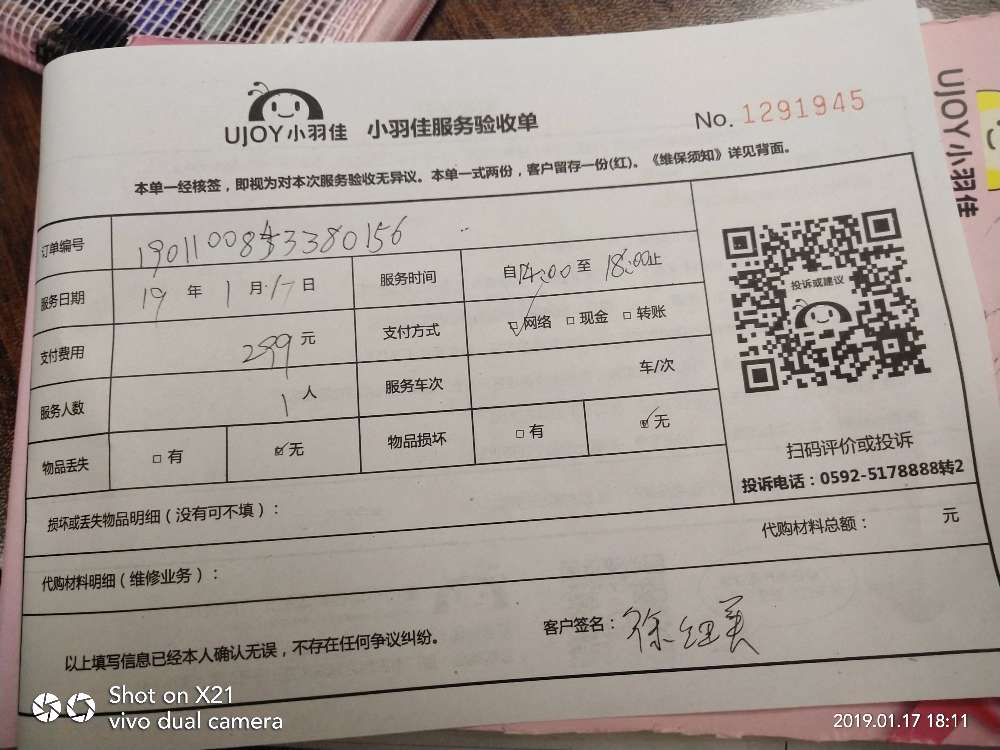 UJOY小羽佳 小羽佳服务验收单 No. 1291945
本单一经核签，即视为对本次服务验收无异议。本单一式两份，客户留存一份(红)。《维保须知》详见背面。
订单编号
服务日期 19 年 1 月 17 日 服务时间 自14:00至 18:00止
支付费用 299 元 支付方式 网络 □ 现金 □ 转账
服务人数 1 人 服务车次 车/次
物品丢失 □ 有 无 物品损坏 □ 有 无
投诉或建议
扫码评价或投诉
投诉电话：0592-5178888转2
损坏或丢失物品明细（没有可不填）：
代购材料总额： 元
代购材料明细（维修业务）：
以上填写信息已经本人确认无误，不存在任何争议纠纷。 客户签名：
UJOY小羽佳
Shot on X21
vivo dual camera
2019.01.17 18:11